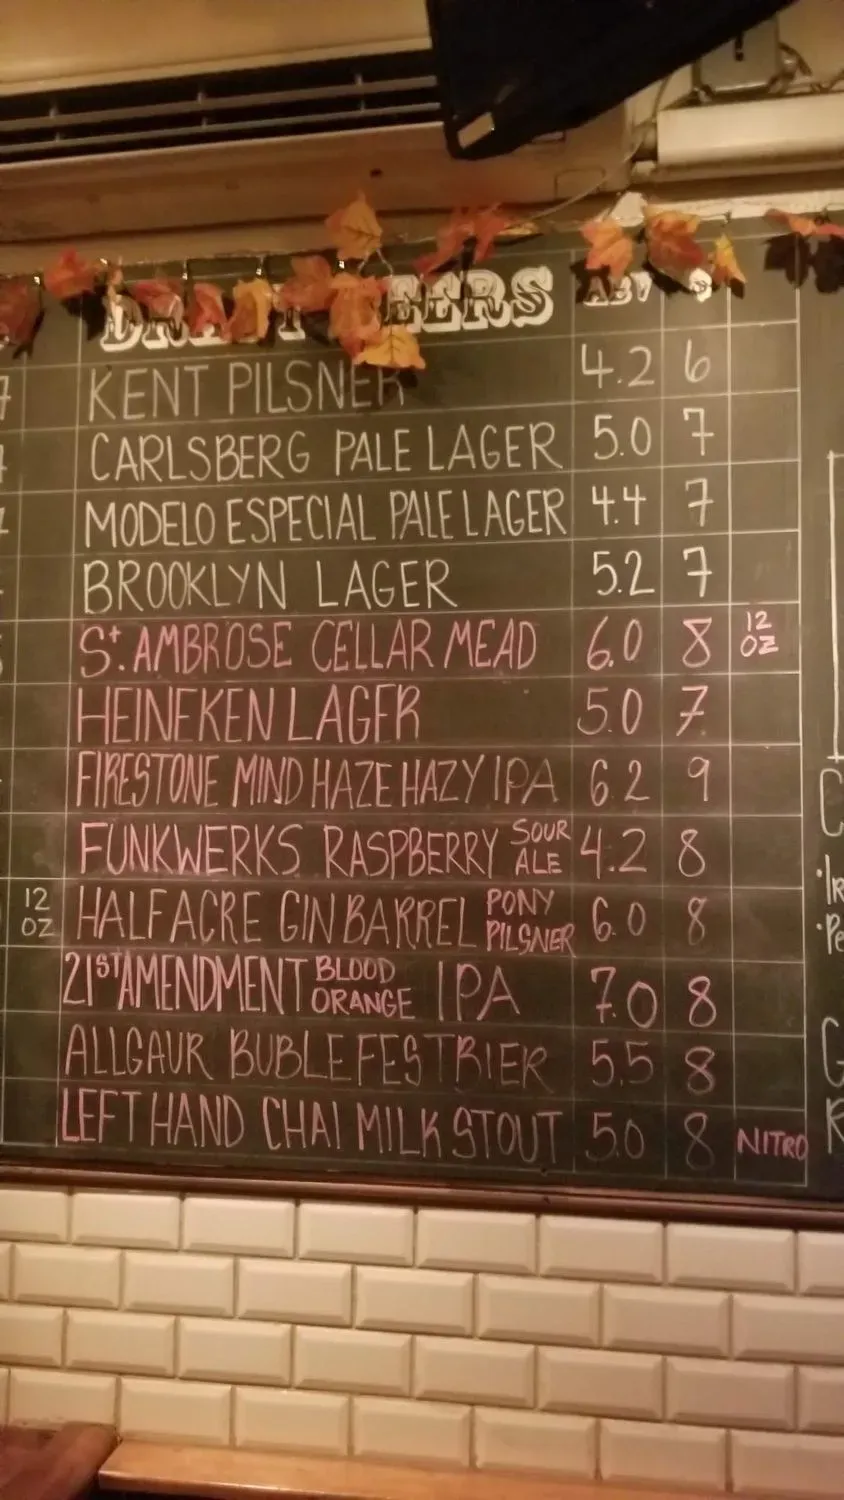 DRAFT BEERS ABV $
KENT PILSNER 4.2 6
CARLSBERG PALE LAGER 5.0 7
MODELO ESPECIAL PALE LAGER 4.4 7
BROOKLYN LAGER 5.2 7
St. AMBROSE CELLAR MEAD 6.0 8 12 OZ
HEINEKEN LAGER 5.0 7
FIRESTONE MIND HAZE HAZY IPA 6.2 9
FUNKWERKS RASPBERRY SOUR ALE 4.2 8
12 OZ
HALF ACRE GIN BARREL PONY PILSNER 6.0 8
21ST AMENDMENT BLOOD ORANGE IPA 7.0 8
ALLGAUR BUBLE FESTBIER 5.5 8
LEFT HAND CHAI MILK STOUT 5.0 8 NITRO